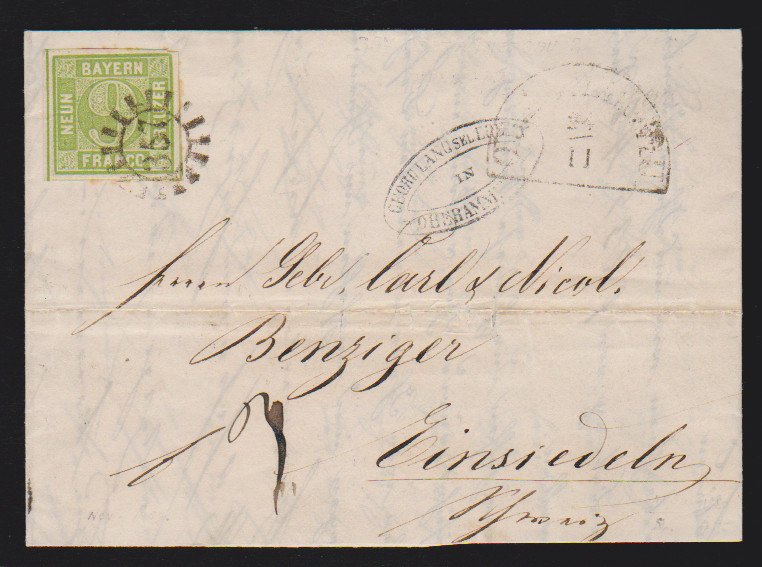 BAYERN
NEUN
9
FRANCO
GEORG LANG SEL.
IN
OBERAMM
11
Herrn Gebr. Carl & Nicol.
Benziger
Einsiedeln
Schweiz